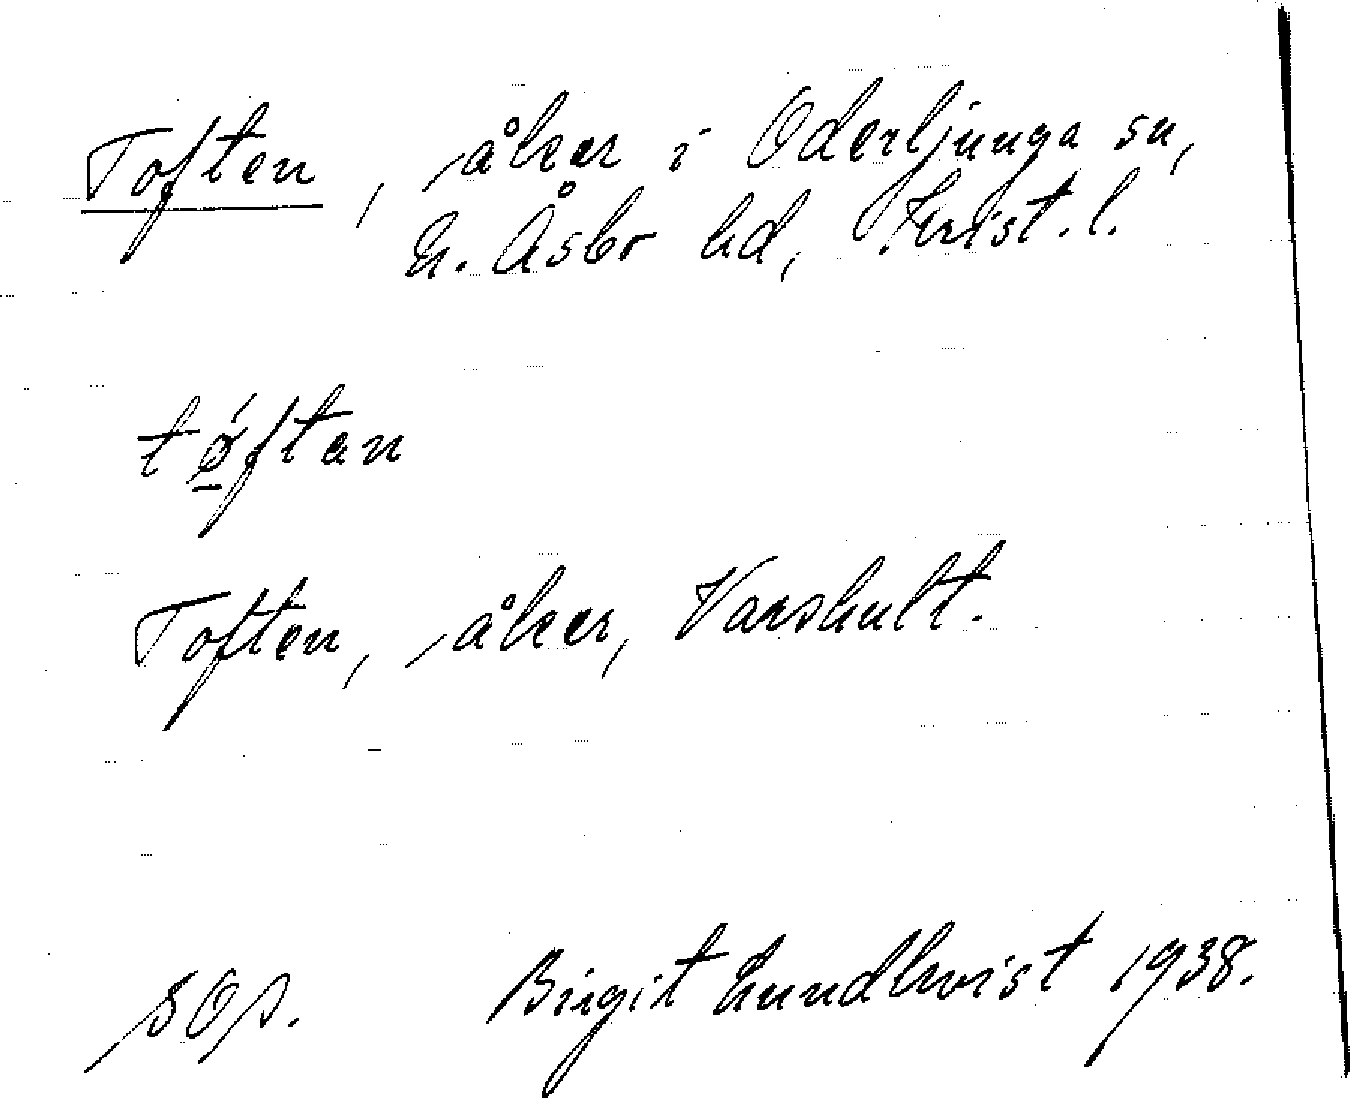 Toften, åker i Oderljunga sn,
N. Åsbo hd, Krist. l.
tǿftan
Toften, åker, Varshult.
SOS. Birgit Lundkvist 1938.